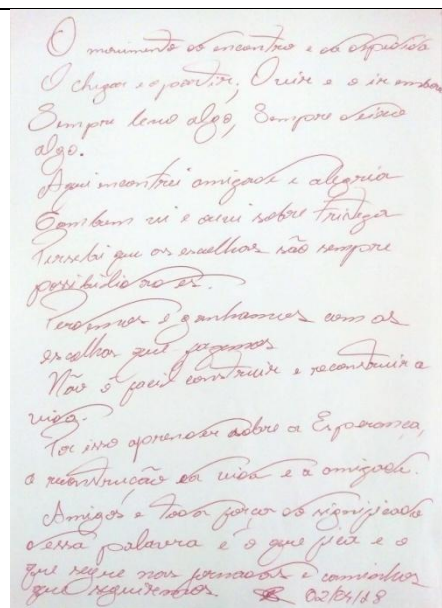 O movimento do encontro e da despedida
O chegar e o partir; O vir e o ir embora
Sempre levo algo, Sempre deixo
algo.
Aqui encontrei amizade e alegria
Também vi e ouvi sobre Tristeza
Persebi que as escolhas são sempre
posibilidades.
Perdemos e ganhamos com as
escolhas que fazemos
Não é facil construir e reconstruir a
vida.
Por isso aprender sobre a Esperança,
a reconstrução da vida e a amizade.
Amigos e toda força do significado
dessa palavra é o que fica e o
que segue nas jornadas e caminhos
que seguiremos 02/04/18